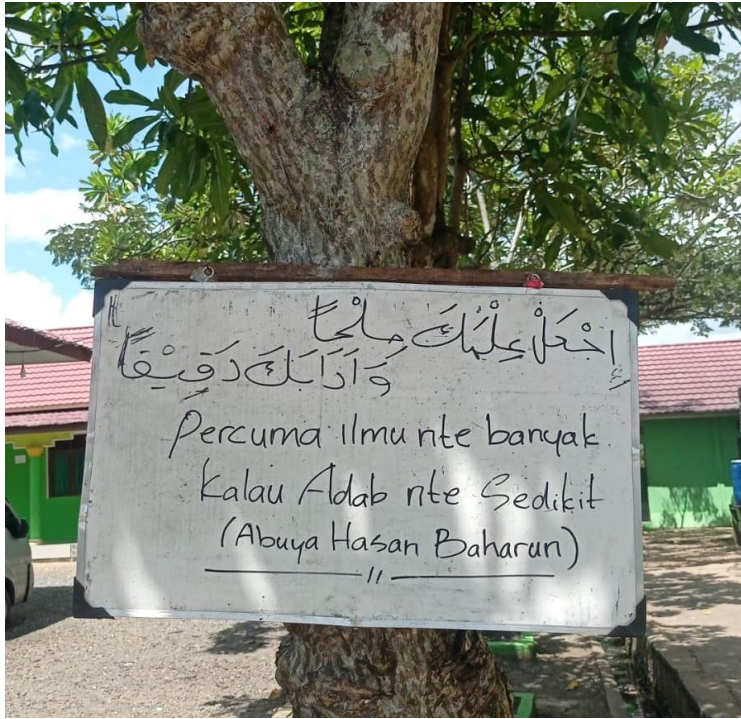 إِجْعَلْ عِلْمَكَ مِلْحًا
وَأَدَابَكَ دَقِيْقًا
Percuma ilmu nte banyak
Kalau Adab nte Sedikit
(Abuya Hasan Baharun)